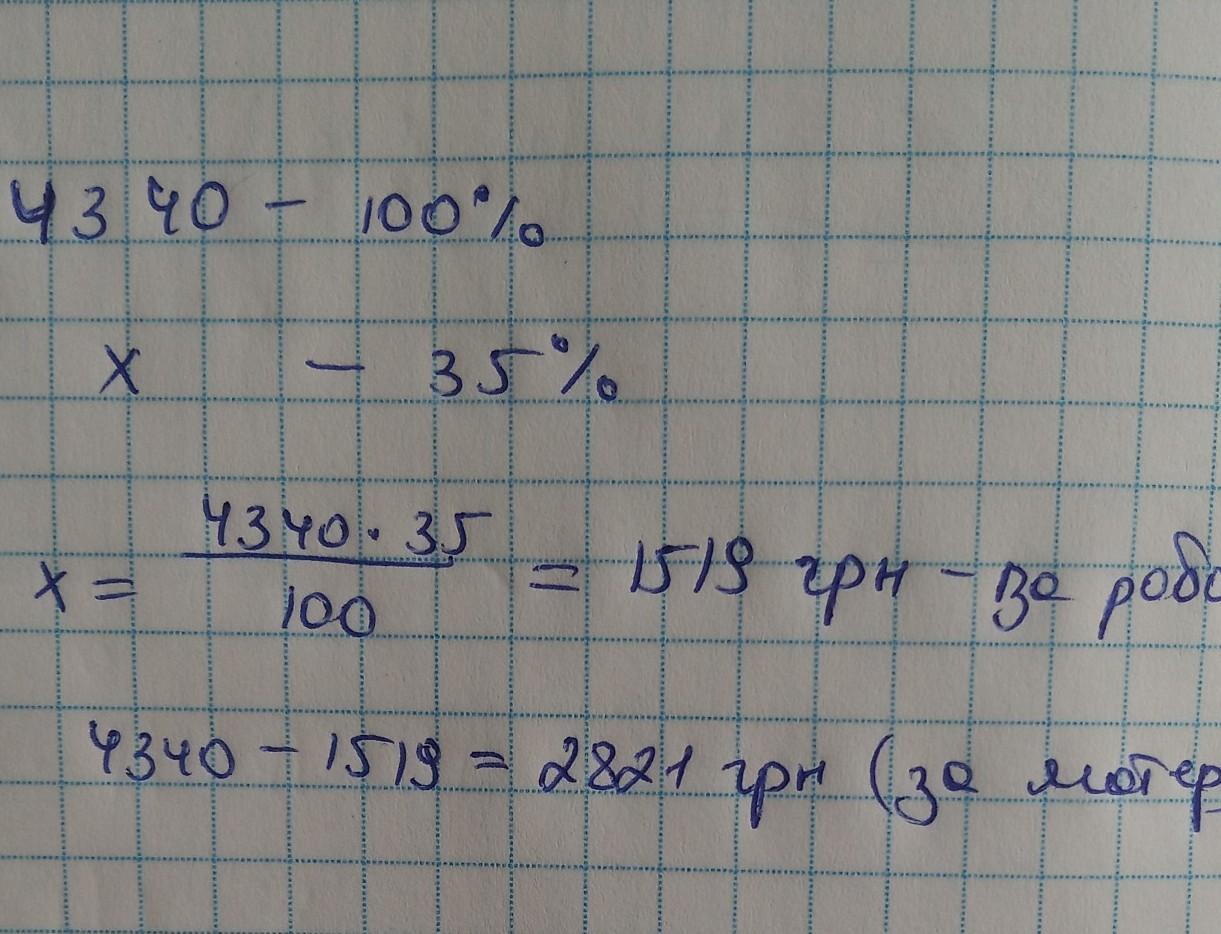 4340 - 100%
x - 35%
x = 4340 · 35 / 100 = 1519 грн - за робо
4340 - 1519 = 2821 грн (за матер